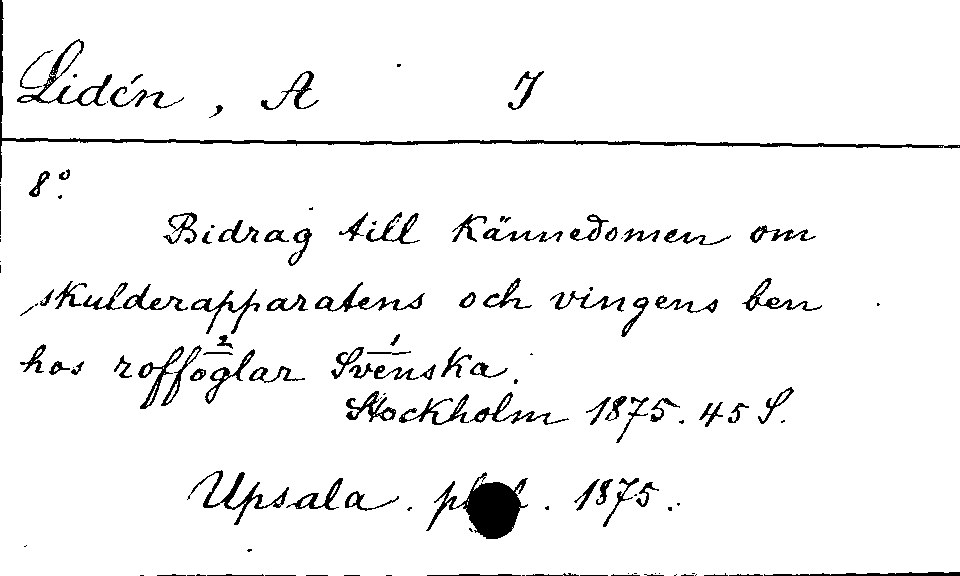 Lidén, A J
8°.
Bidrag till Kännedomen om
skulderapparatens och vingens ben
hos roffoglar Svenska.
2 1
Stockholm 1875. 45 S.
Upsala. 1875.